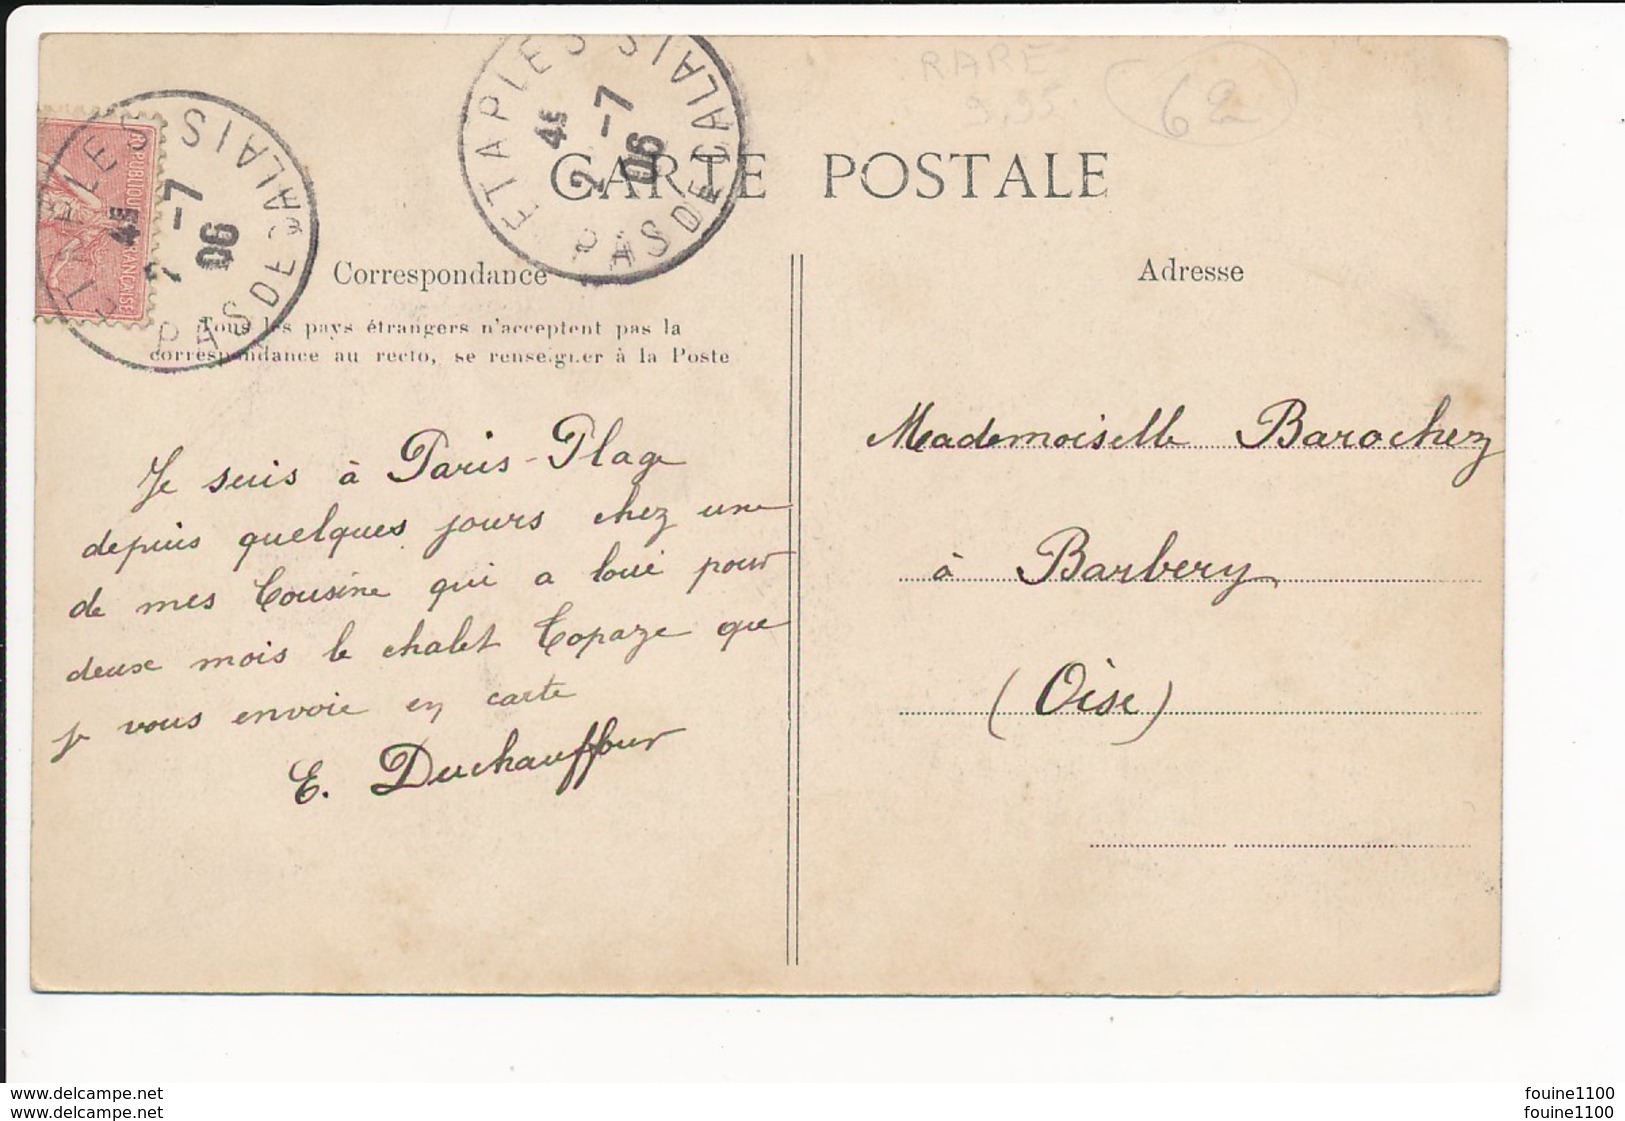 RARE
62
ETAPLES PAS DE CALAIS
4E
2-7
06
ETAPLES PAS DE CALAIS
4E
2-7
06
REPUBLIQUE FRANÇAISE
CARTE POSTALE
Correspondance
Adresse
Tous les pays étrangers n'acceptent pas la
correspondance au recto, se renseigner à la Poste
Je suis à Paris-Plage
depuis quelques jours chez une
de mes Cousine qui a loué pour
deux mois le chalet Topaze que
je vous envoie en carte
E. Duchauffour
Mademoiselle Barochez
à Barbery
(Oise)
www.delcampe.net
www.delcampe.net
fouine1100
fouine1100